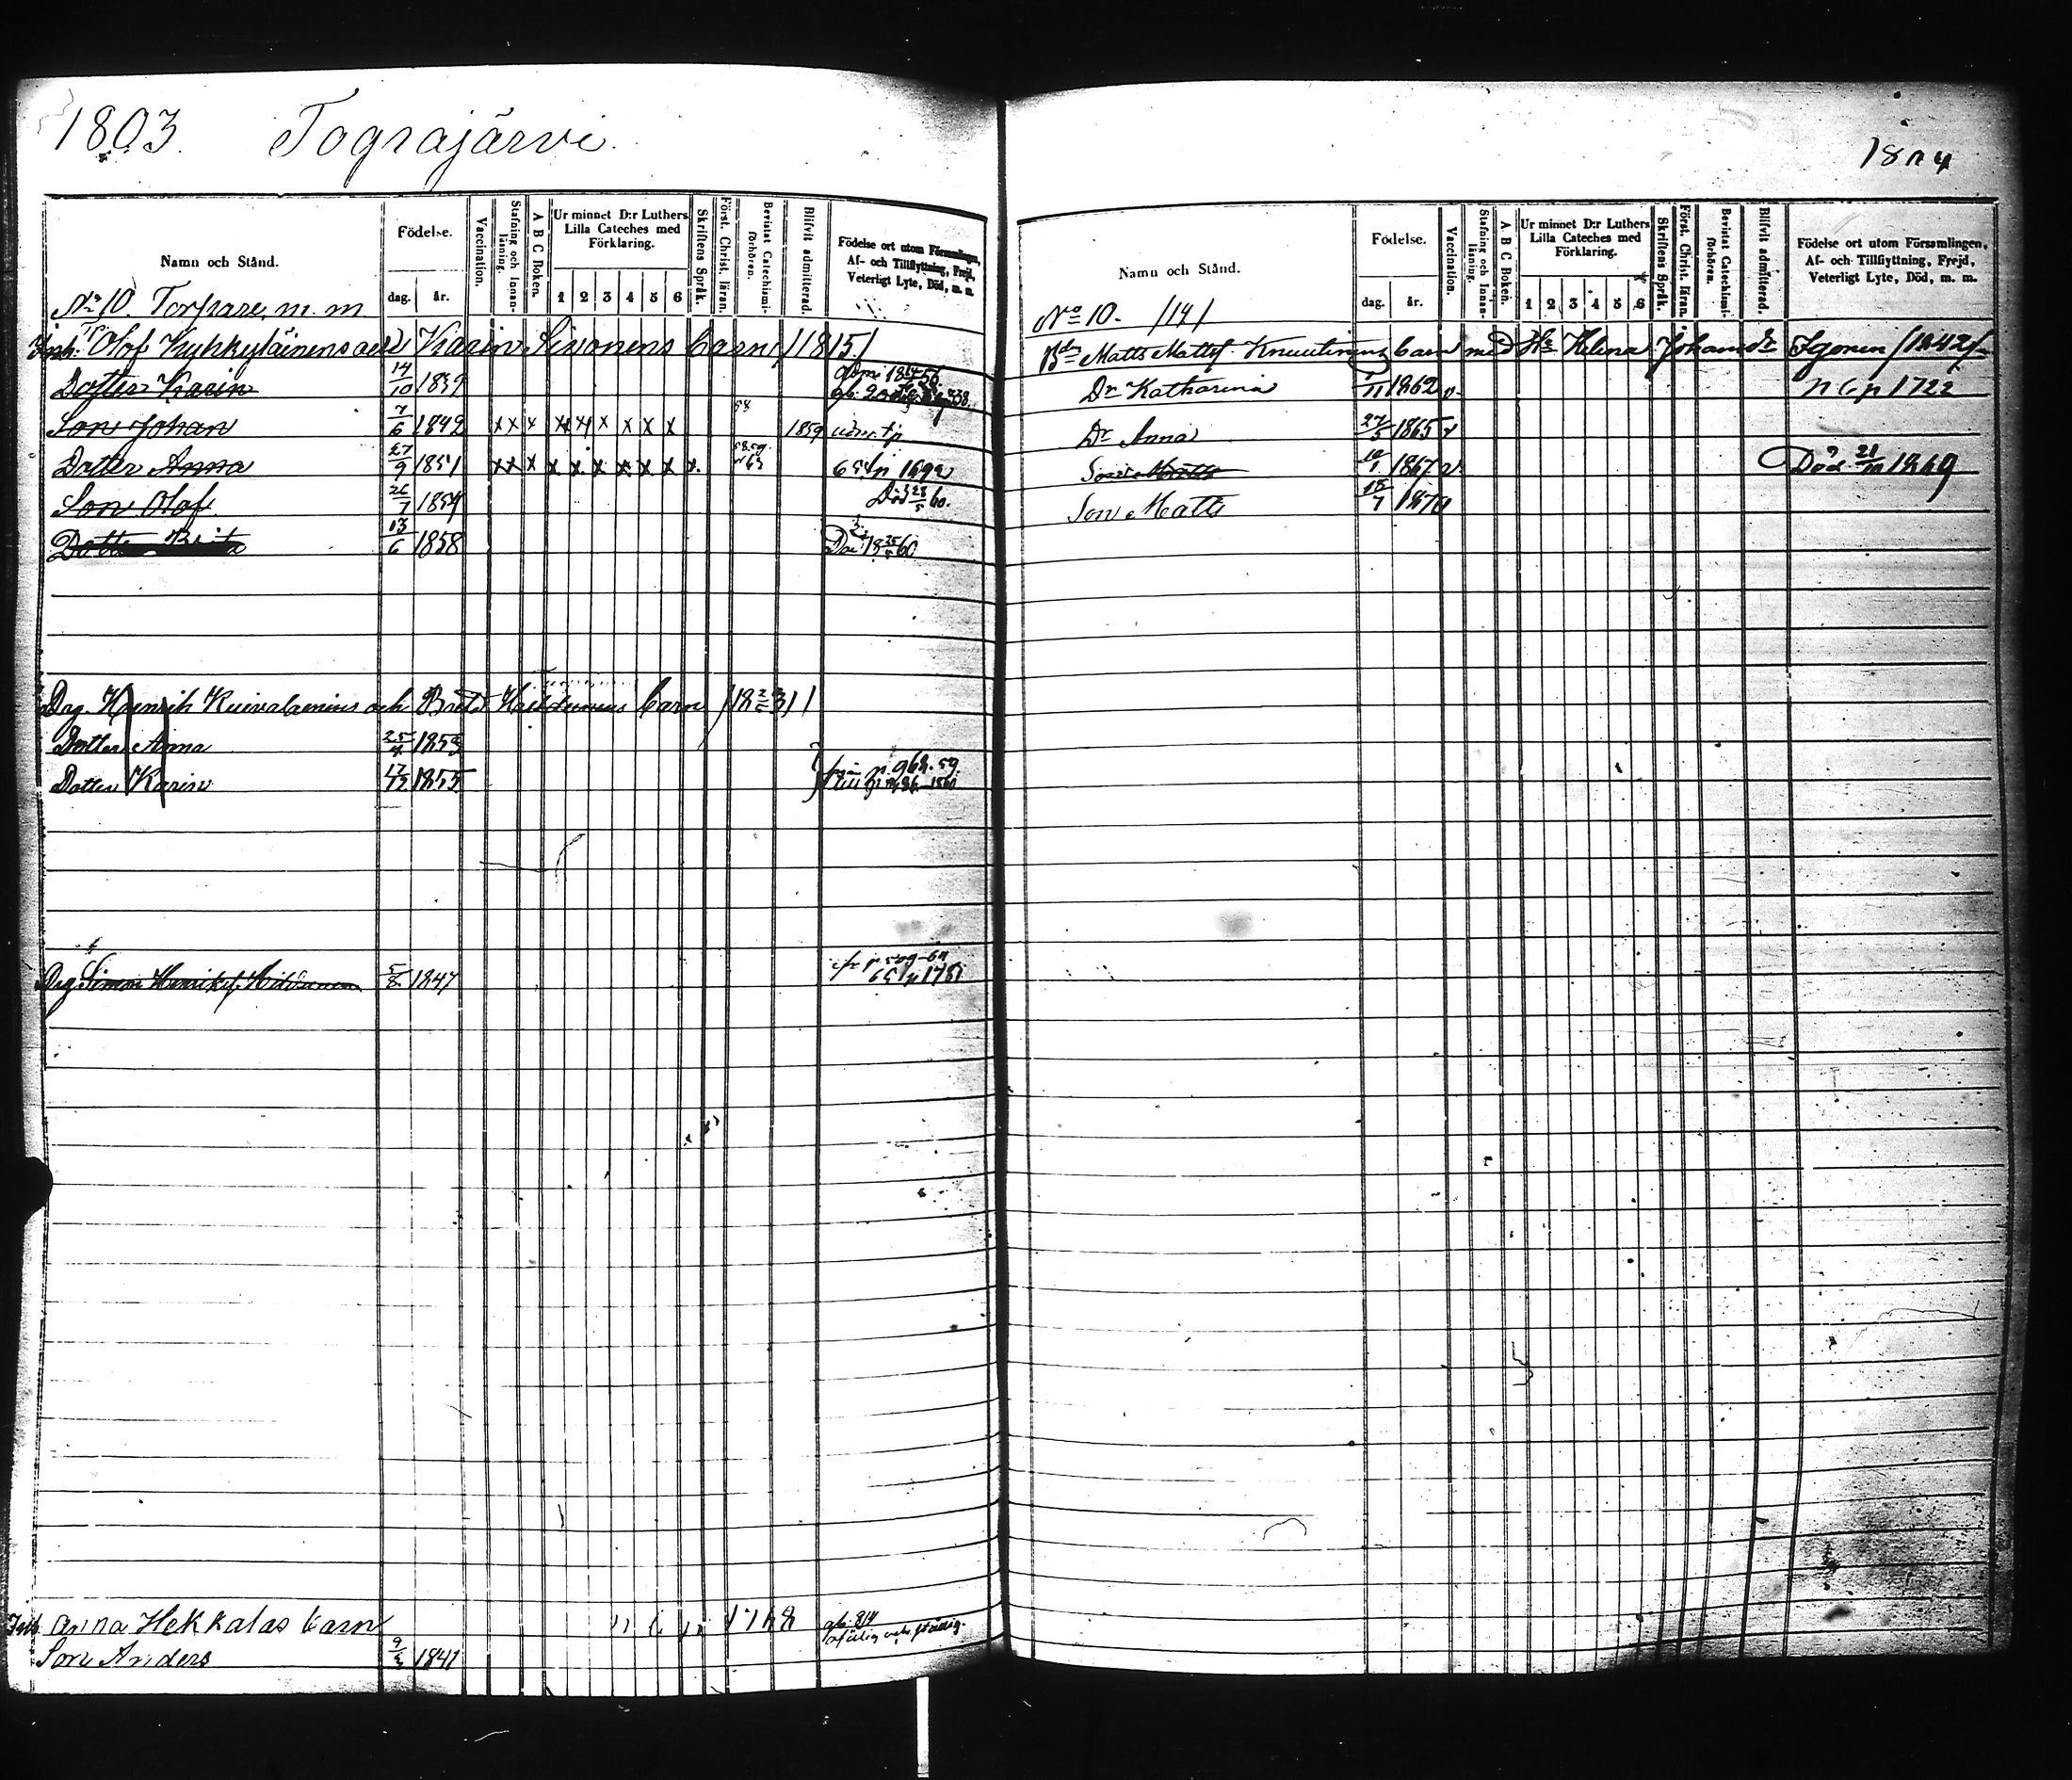 1803. Tograjärvi.
Namn och Stånd.
Födelse.
dag.
år.
Vaccination.
Stafning och Innan-läsning.
A B C Boken.
Ur minnet D:r Luthers
Lilla Cateches med
Förklaring.
1 2 3 4 5 6
Skriftens Språk.
Först. Christ. läran.
Bevistat Catechismi-förhören.
Blifvit admitterad.
Födelse ort utom Församlingen,
Af- och Tillflyttning, Frejd,
Veterligt Lyte, Död, m. m.
No 10. Torpare, m. m.
Inh. Olof Kykkyläinens och Karin Sivonens barn /1815/
Dotter Karin 14/10 1839
Son Johan 7/6 1842 x x x x x x x x x 58 1859
Dotter Anna 27/9 1851 x x x x x x x x x x 58.59 63 65 p 1692
Son Olof 26/7 1854 Död 28/5 60.
Dotter Brita 13/6 1858 60
Drg. Henrik Kuivalainens och Brita barn
Dotter Anna 25/4 1853
Dotter Karin 17/12 1855 p 968. 59
Drg Simon Henriksf. 5/8 1847 65/p 1781
Inh Anna Hekkalas barn 1768 gb. 814
Son Anders 9/3 1841
1804
Namn och Stånd.
Födelse.
dag.
år.
Vaccination.
Stafning och Innan-läsning.
A B C Boken.
Ur minnet D:r Luthers
Lilla Cateches med
Förklaring.
1 2 3 4 5 6
Skriftens Språk.
Först. Christ. läran.
Bevistat Catechismi-förhören.
Blifvit admitterad.
Födelse ort utom Församlingen,
Af- och Tillflyttning, Frejd,
Veterligt Lyte, Död, m. m.
No 10. /14/
Bdn Matts Mattsf. Knuutinens barn med Hu Helena Johansdr Igonen /1842/
Dr Katharina 1/11 1862 v. p 1722
Dr Anna 27/5 1865 v
Son Matts 10/1 1867 v. Död 21/10 1869
Son Matts 15/7 1870